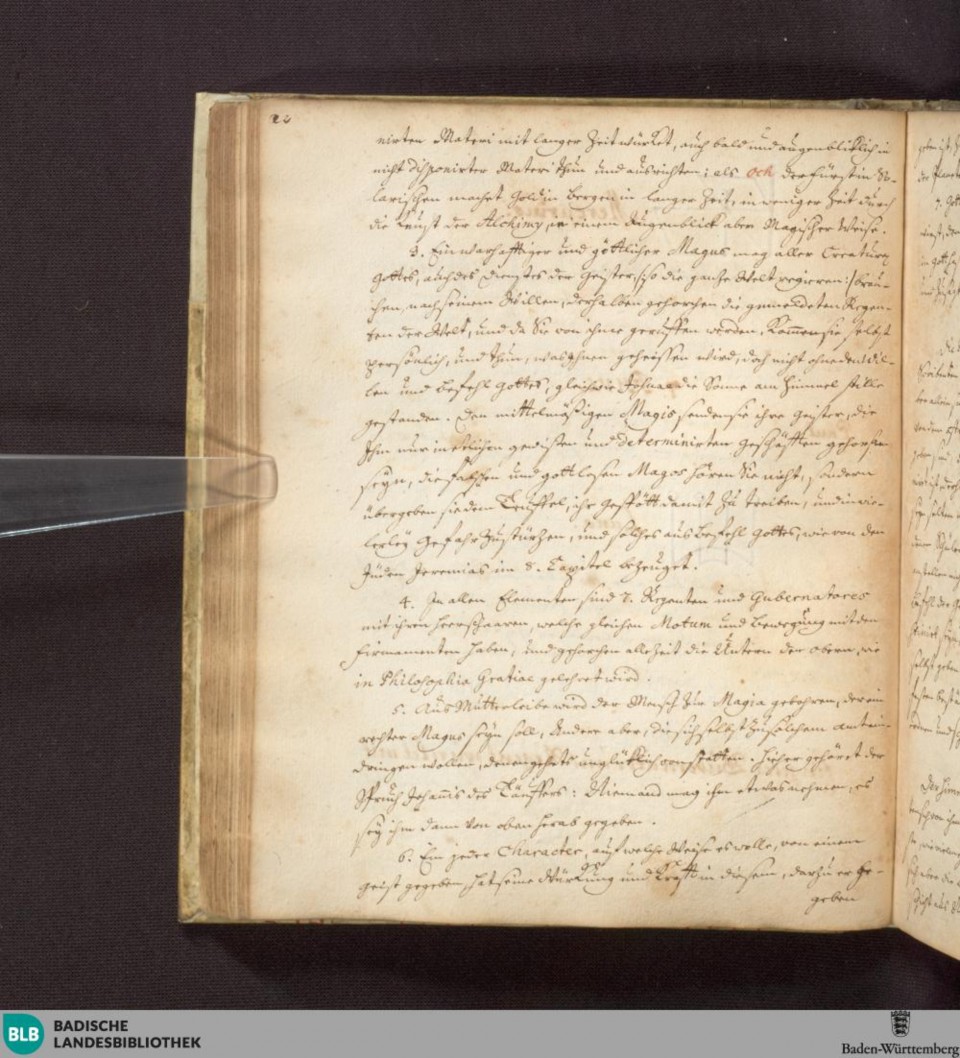 26
nirten Materi mit langer Zeit würket, auch bald und augenbliklich in
nicht disponirter Materi thun und ausrichten; als Och der Fürst in So-
larischen machet Gold in Bergen in langer Zeit, in weniger Zeit durch
die Kunst der Alchimy, in einem Augenblick aber Magischer Weise.
3. Ein warhafftiger und göttlicher Magus mag aller Creaturen
Gottes, auch des Dienstes der Geister, so die gantze Welt regieren, brau-
chen, nach seinem Willen, derhalben gehorchen die gemeldeten Regen-
ten der Welt, und da Sie von ihme geruffen werden, kommen sie selbst
persönlich, und thun, was ihnen geheissen wird, doch nicht ohne den Wil-
len und Befehl Gottes, gleichwie Josuae die Sonne am Himmel stille
gestanden. Den mittelmäßigen Magis senden sie ihre Geister, die
Ihm nur in etlichen gewissen und determinirten Geschäfften gehorsam
seyn, die falschen und gottlosen Magos hören Sie nicht, sondern
übergeben sie dem Teuffel, ihr Gespött damit zu treiben, und in vie-
lerley Gefahr zustürzen, und solches aus Befehl Gottes, wie von den
Juden Jeremias im 8. Capitel bezeuget.
4. In allen Elementen sind 7. Regenten und Gubernatores
mit ihren Heerschaaren, welche gleichen Motum und Bewegung mit dem
Firmamenten haben, und gehorchen allezeit die Untern den Obern, wie
in Philosophia Gratiae gelehret wird.
5. Aus Mutterleibe wird der Mensch zur Magia gebohren, der ein
rechter Magus seyn soll, Andere aber, die sich selbst zu solchem amt ein-
dringen wollen, denen gehets unglücklich von statten. Hieher gehöret der
Spruch Johannis des Täuffers: Niemand mag ihm etwas nehmen, es
sey ihm dann von oben herab gegeben.
6. Ein jeder Character, auf welche Weise es wolle, von einem
Geist gegeben, hat seine Würkung und Krafft in diesem, darzu er ge-
geben
BLB
BADISCHE
LANDESBIBLIOTHEK
Baden-Württemberg